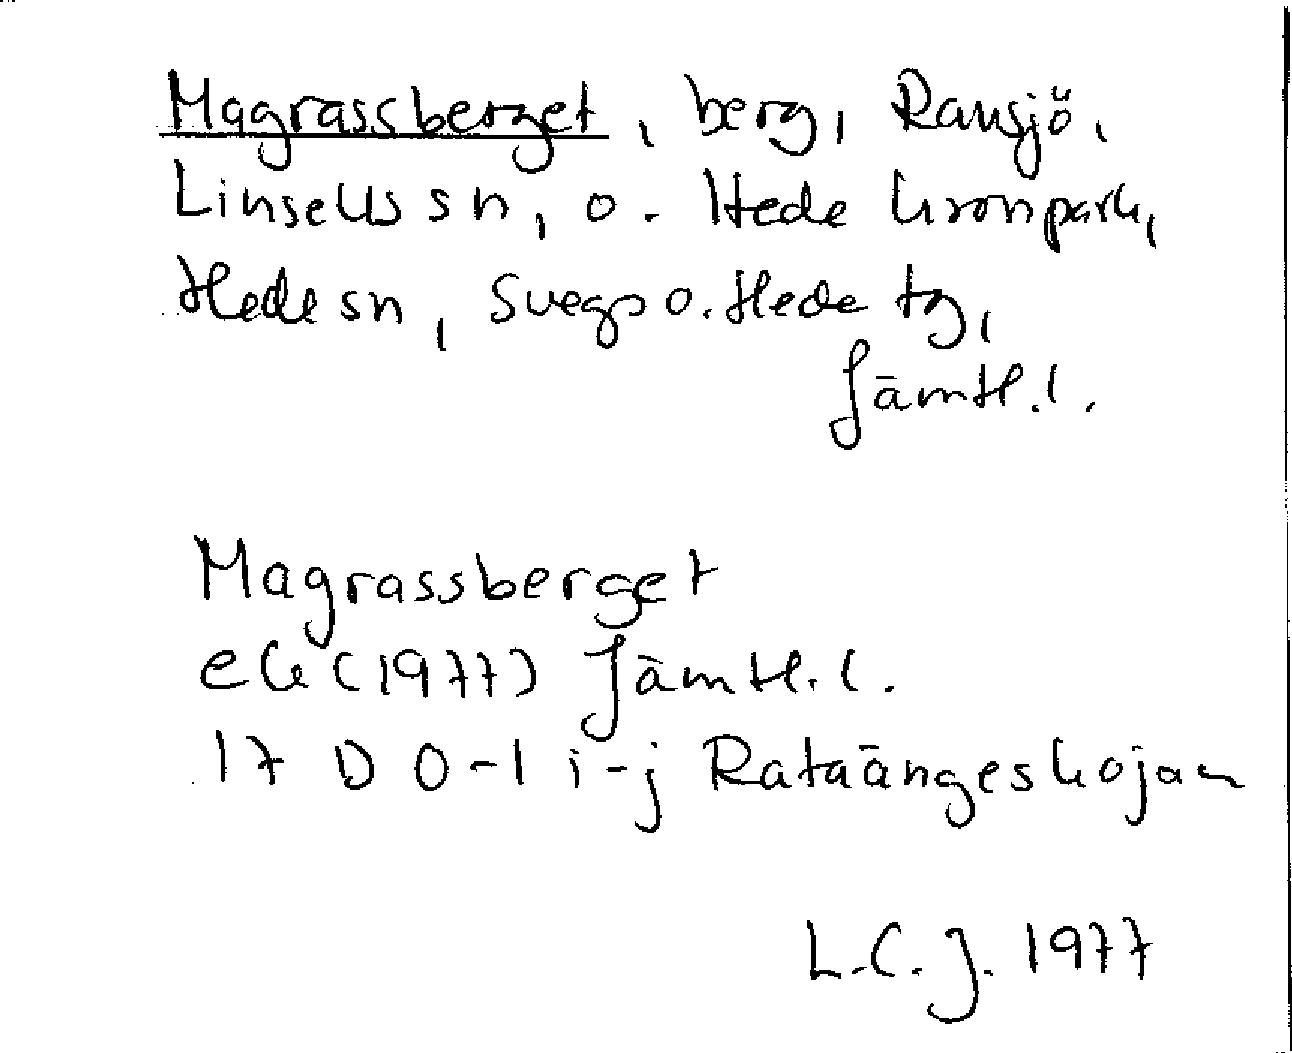 Magrassberget, berg, Ransjö,
Linsells sn, o. Hede kronpark,
Hede sn, Svegs o. Hede tg,
Jämtl.l.
Magrassberget
ek (1977) Jämtl.l.
17 D 0-1 i-j Rataängeskojan
L.C.J. 1977